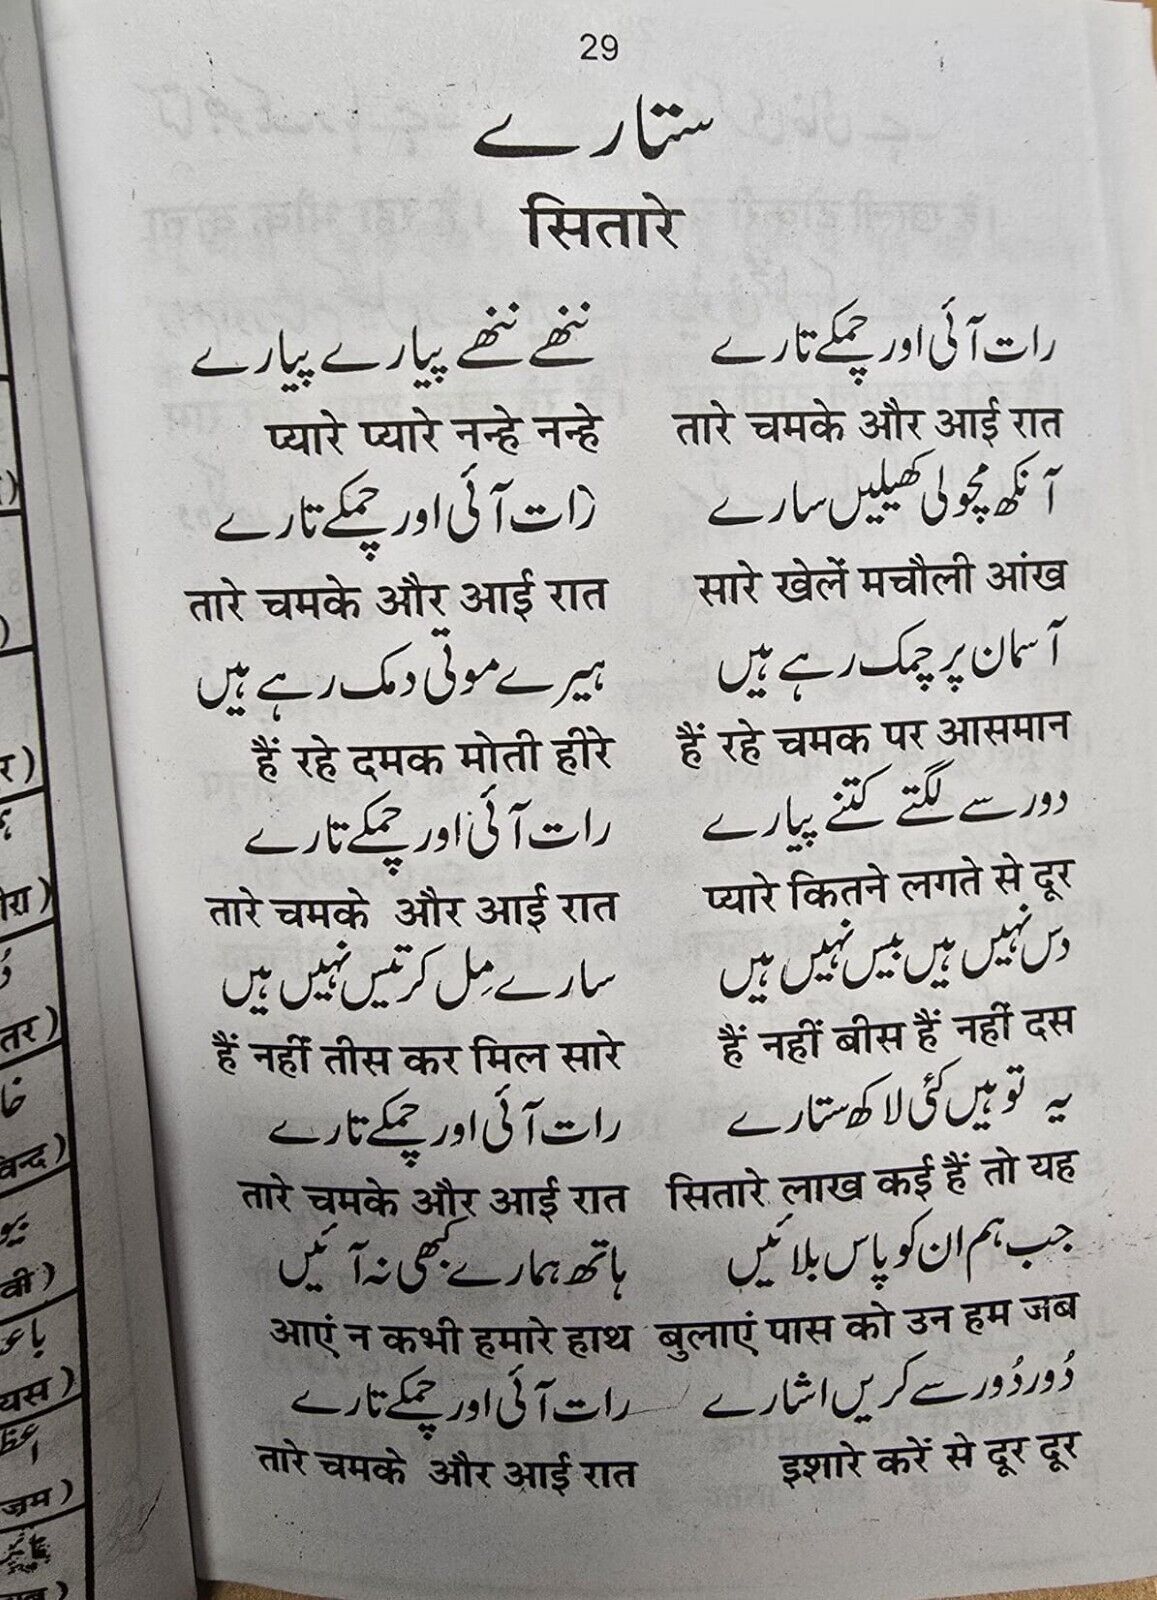 29
ستارے
सितारे
رات آئی اور چمکے تارے ننھے ننھے پیارے پیارے
प्यारे प्यारे नन्हे नन्हे तारे चमके और आई रात
آنکھ مچولی کھیلیں سارے رات آئی اور چمکے تارے
तारे चमके और आई रात सारे खेलें मचौली आंख
آسمان پر چمک رہے ہیں ہیرے موتی دمک رہے ہیں
हैं रहे दमक मोती हीरे हैं रहे चमक पर आसमान
دور سے لگتے کتنے پیارے رات آئی اور چمکے تارے
तारे चमके और आई रात प्यारे कितने लगते से दूर
دس نہیں ہیں بیس نہیں ہیں سارے مِل کر تیس نہیں ہیں
हैं नहीं तीस कर मिल सारे हैं नहीं बीस हैं नहीं दस
یہ تو ہیں کئی لاکھ ستارے رات آئی اور چمکے تارے
तारे चमके और आई रात सितारे लाख कई हैं तो यह
جب ہم ان کو پاس بلائیں ہاتھ ہمارے کبھی نہ آئیں
आएं न कभी हमारे हाथ बुलाएं पास को उन हम जब
دُور دُور سے کریں اشارے رات آئی اور چمکے تارے
तारे चमके और आई रात इशारे करें से दूर दूर